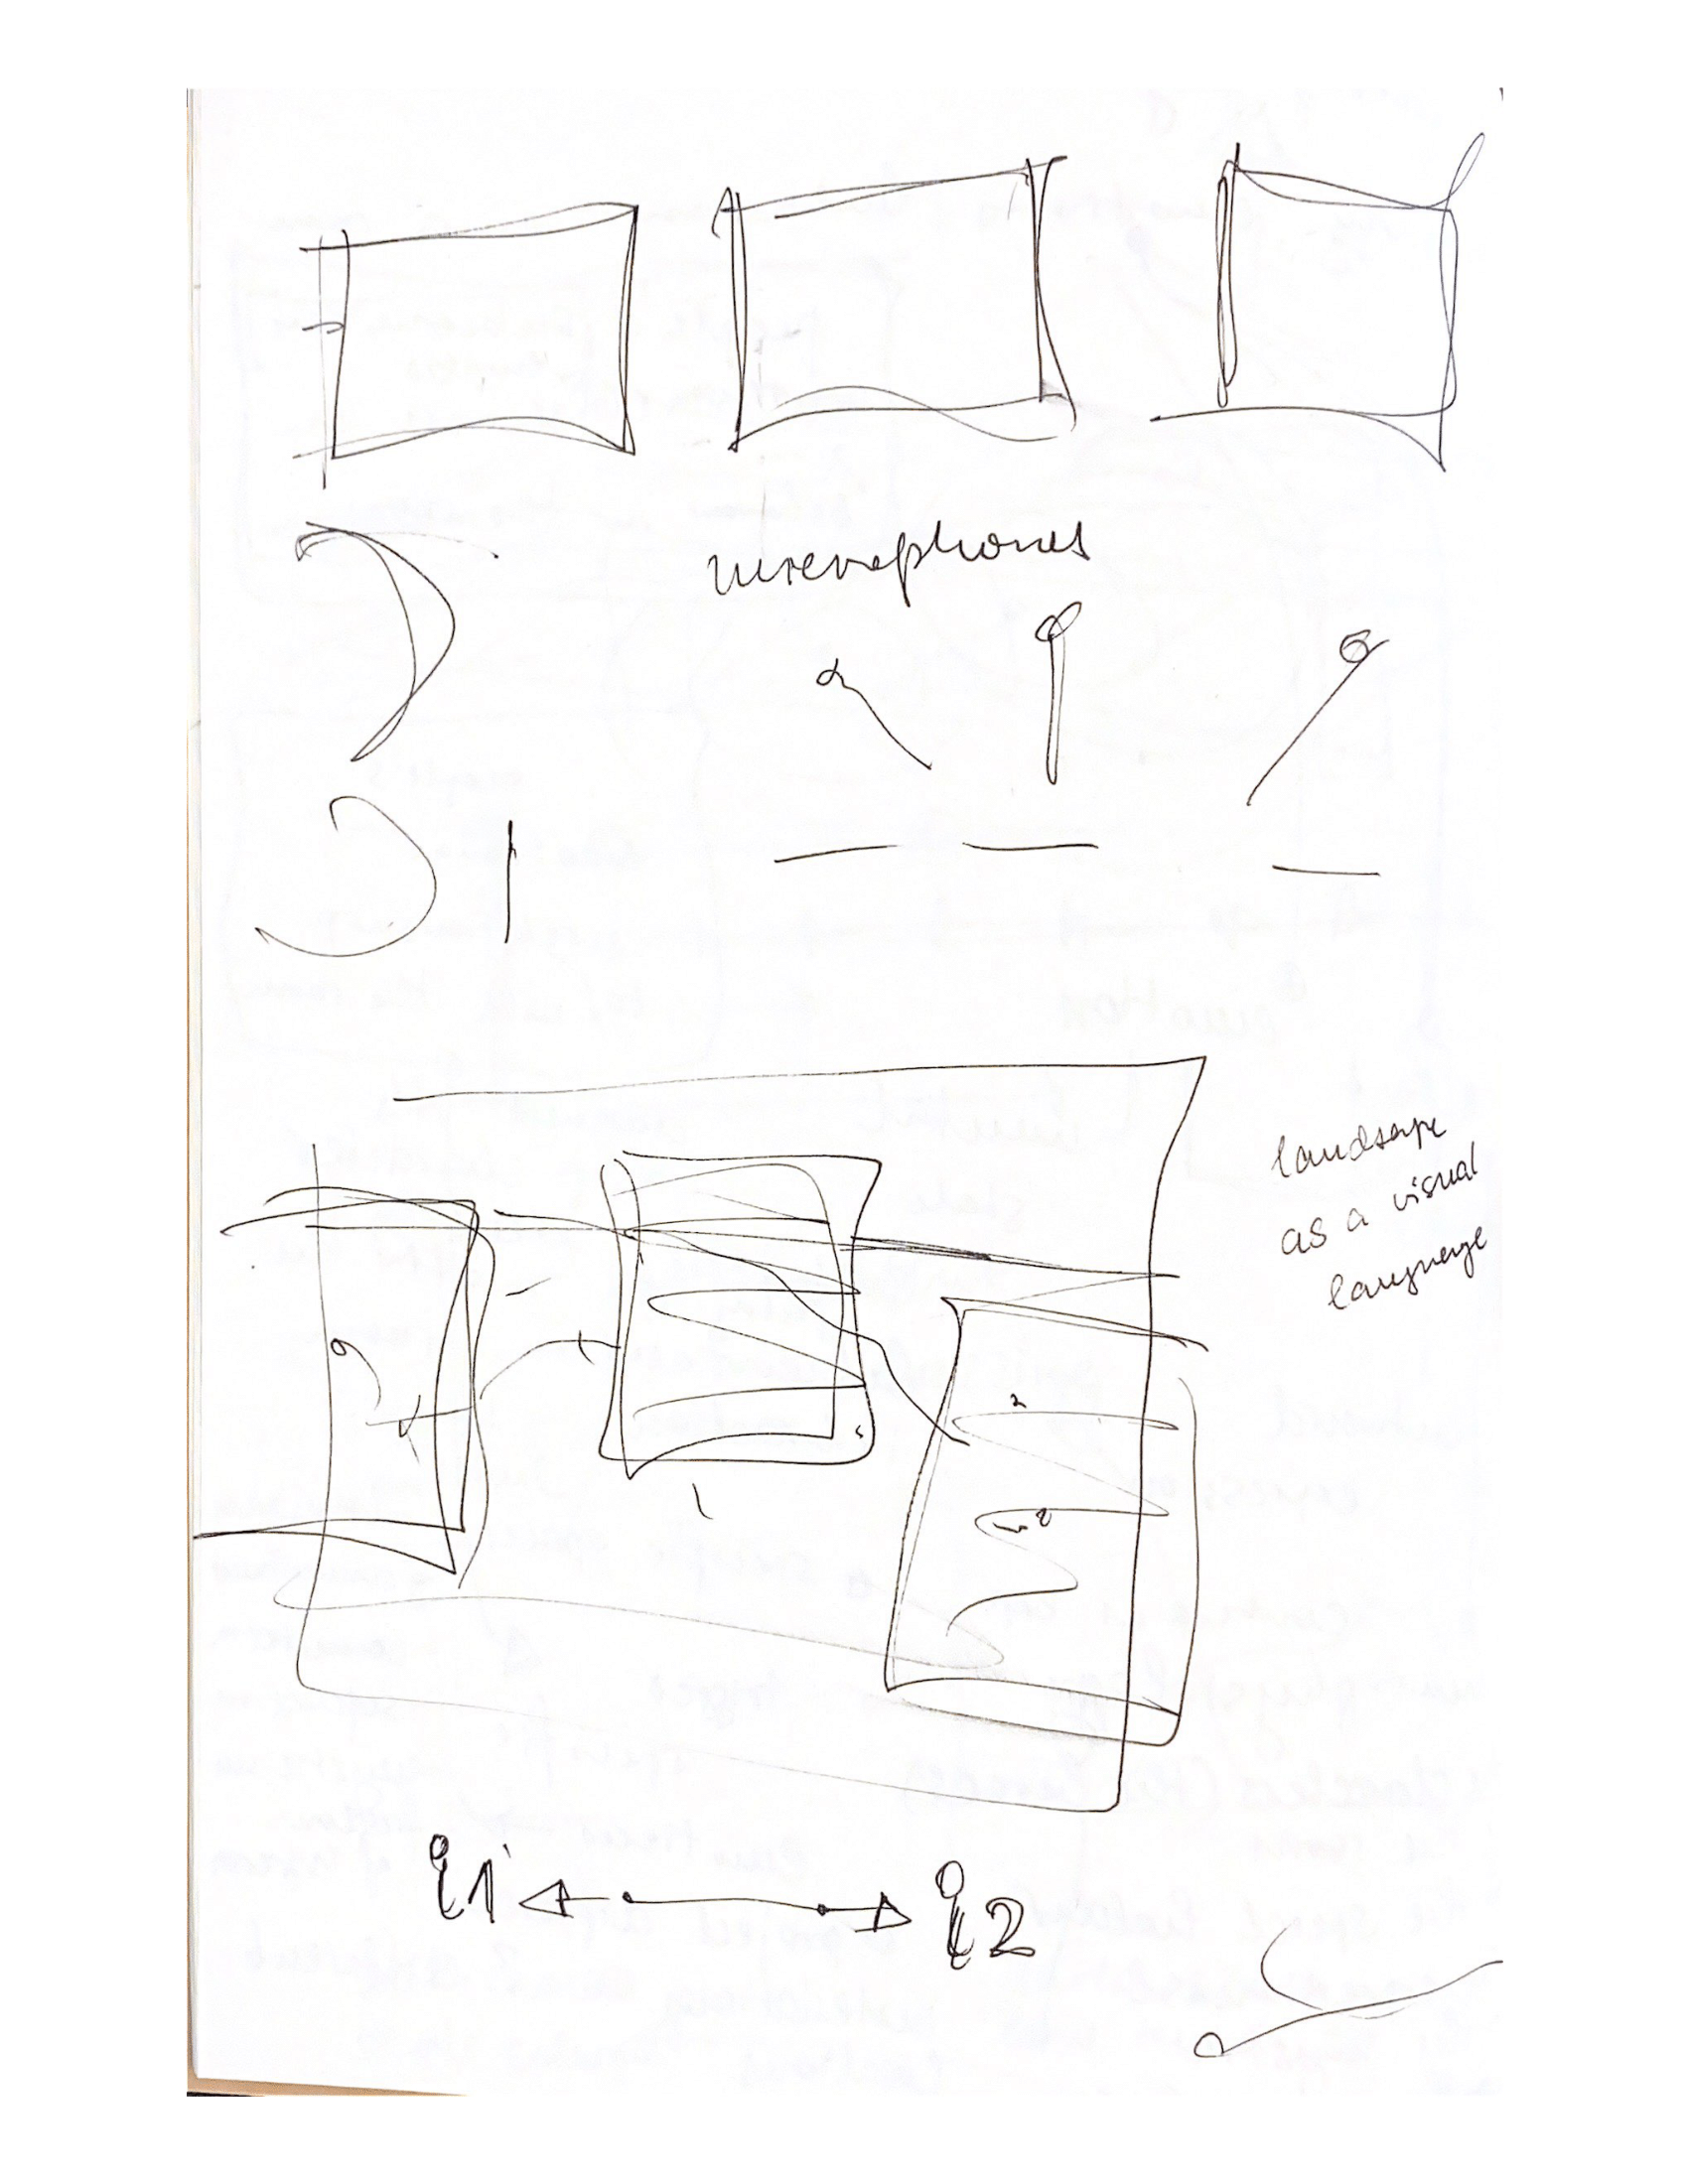 microphones
landscape
as a visual
language
1
2